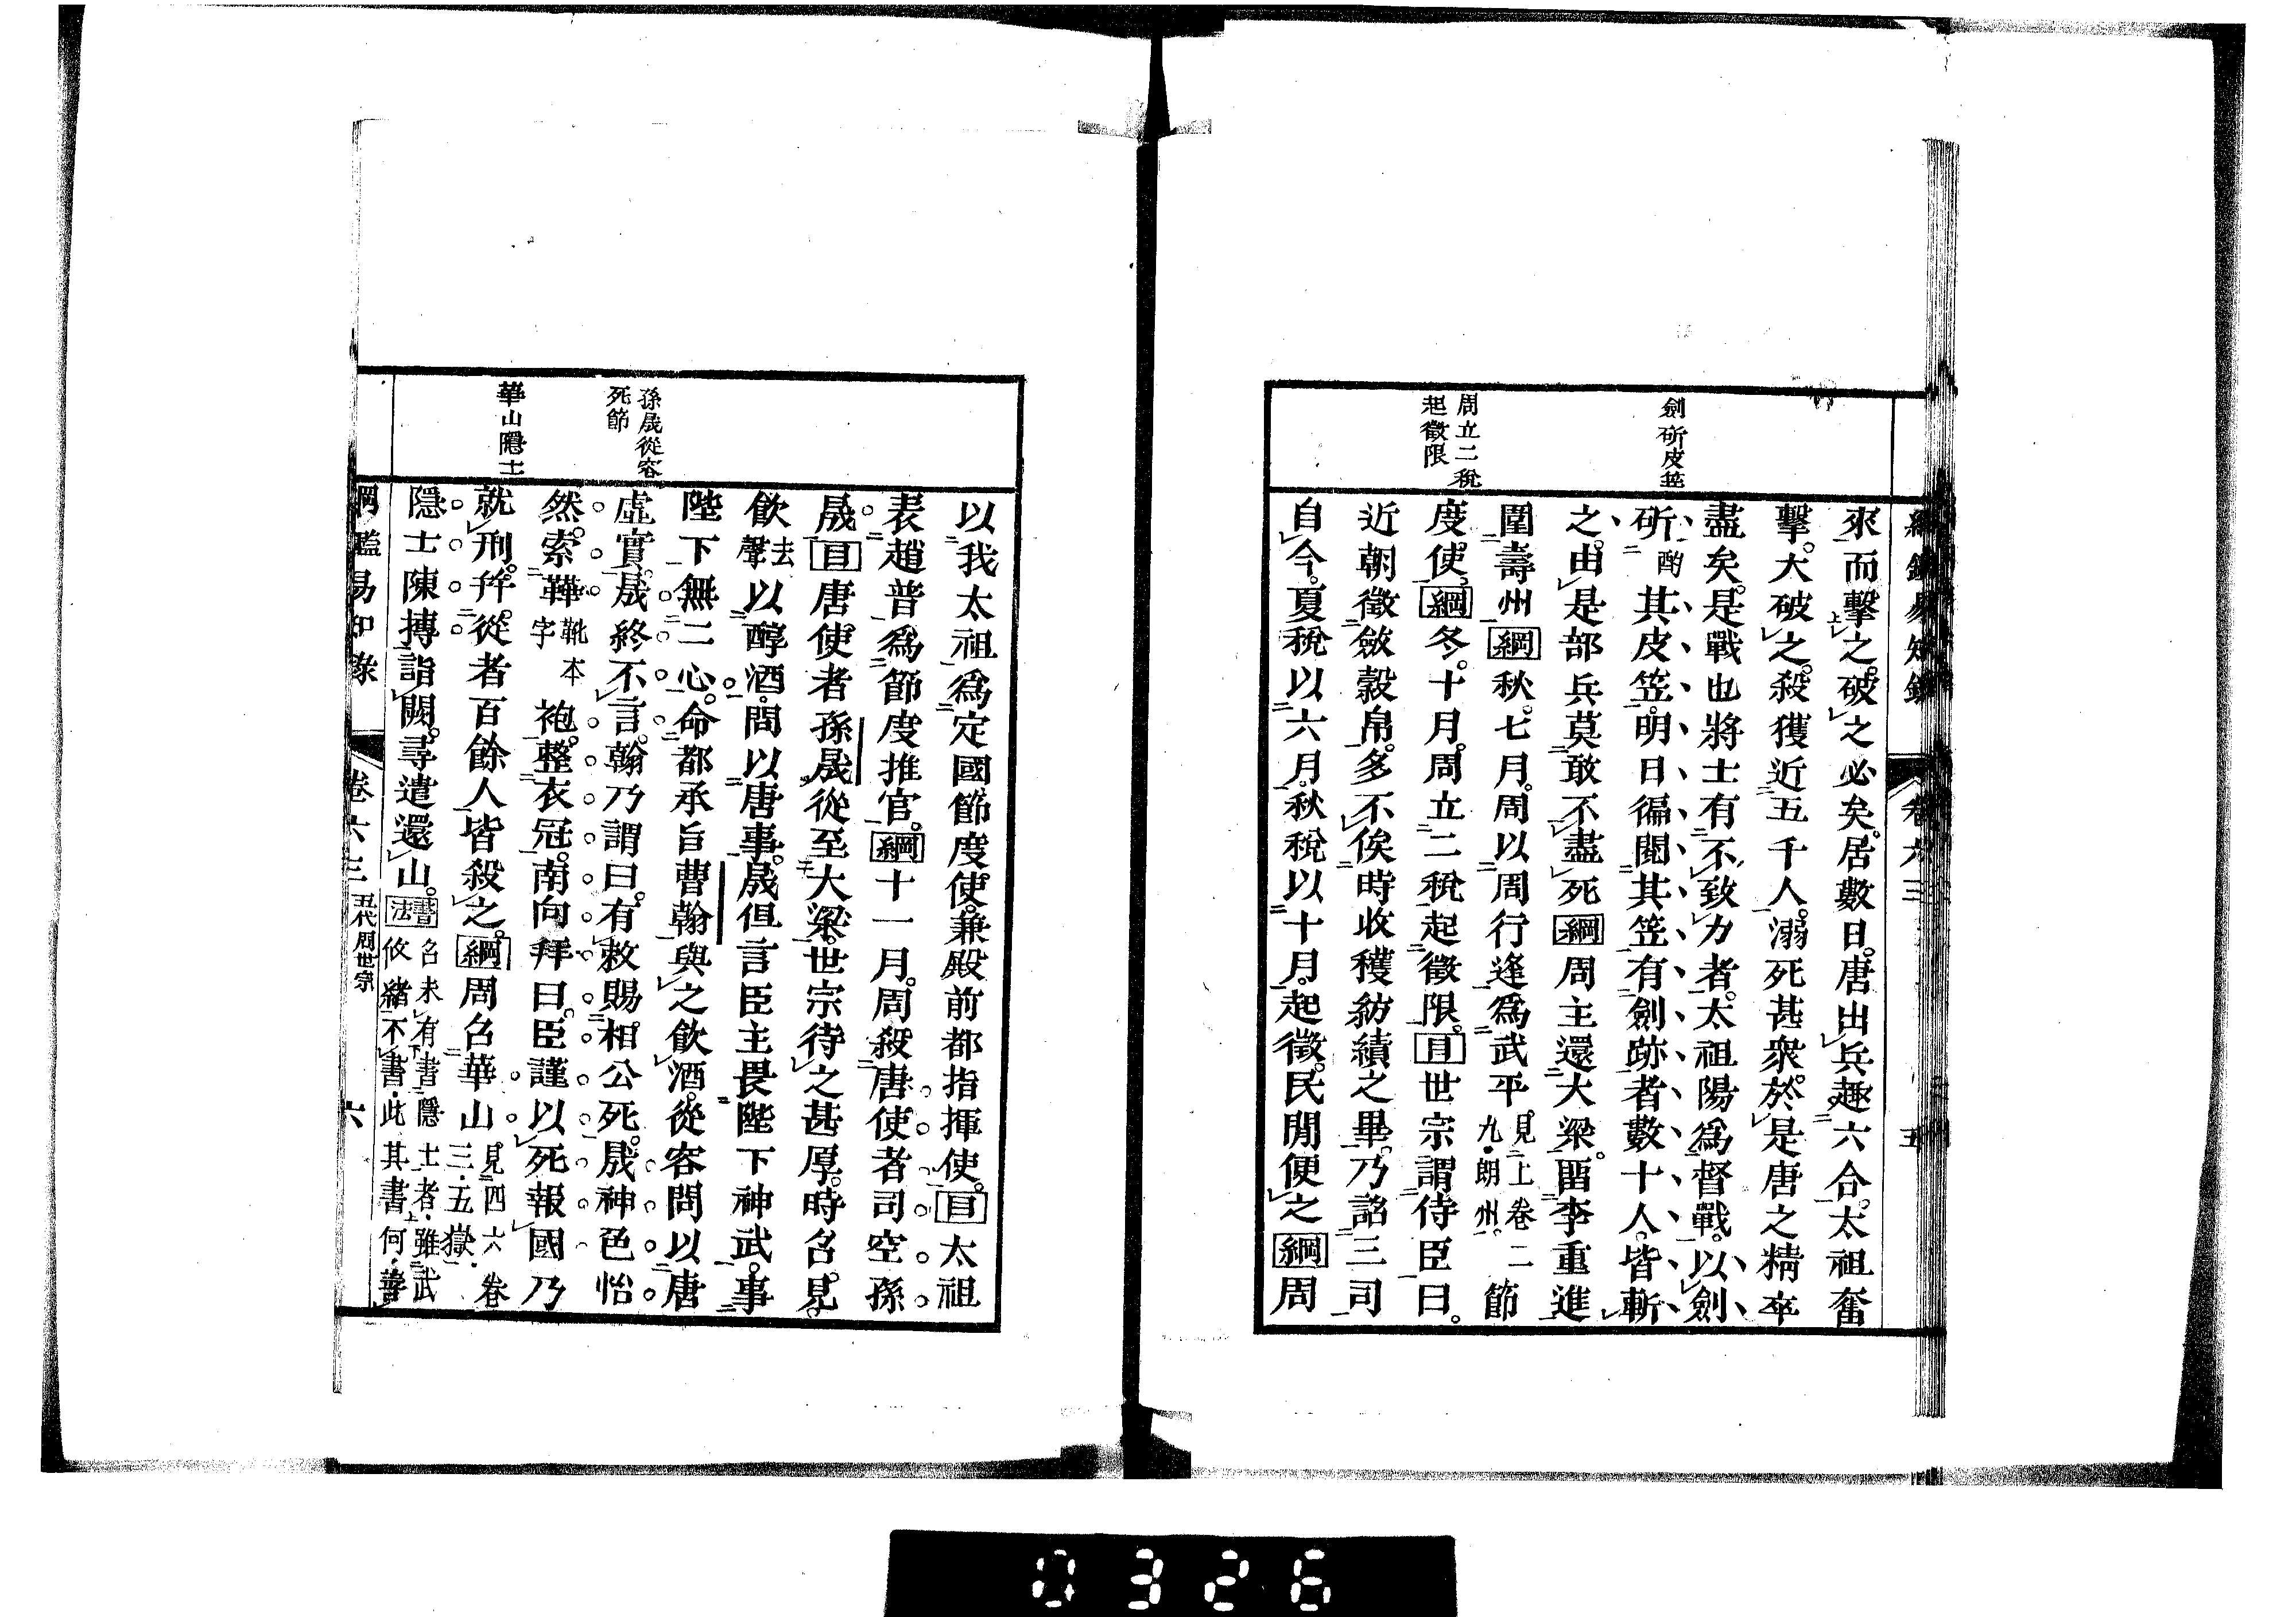 綱鑑易知錄 卷六三 五
劍斫皮笠
周立二稅
起徵限
來而擊之破之必矣。居數日。唐出兵趣六合。太祖奮
擊。大破之。殺獲近五千人。溺死甚衆。於是唐之精卒
盡矣。是戰也將士有不致力者。太祖陽爲督戰。以劍
斫酌其皮笠。明日徧閱其笠。有劍跡者數十人。皆斬
之。由是部兵莫敢不盡死綱周主還大梁。畱李重進
圍壽州綱秋。七月。周以周行逢爲武平見上卷二九朗州。節
度使。綱冬。十月。周立二稅起徵限。目世宗謂侍臣曰。
近朝徵斂穀帛。多不俟時收穫紡績之畢。乃詔三司
自今。夏稅以六月。秋稅以十月。起徵。民閒便之綱周
孫晟從容
死節
華山隱士
以我太祖爲定國節度使。兼殿前都指揮使。目太祖
表趙普爲節度推官。綱十一月。周殺唐使者司空孫
晟目唐使者孫晟從至大梁。世宗待之甚厚。時召見。
飲去聲以醇酒。問以唐事。晟但言臣主畏陛下神武。事
陛下無二心。命都承旨曹翰與之飲酒。從容問以唐
虛實。晟終不言。翰乃謂曰。有敕賜相公死。晟神色怡
然。索鞾靴本字袍。整衣冠。南向拜曰。臣謹以死報國乃
就刑。幷從者百餘人皆殺之。綱周召華山見四六卷三五嶽。
隱士陳摶詣闕。尋遣還山。書法召未有書隱士者雖武攸緒不書此其書何善
綱鑑易知錄 卷六三 五代周世宗 六
0326